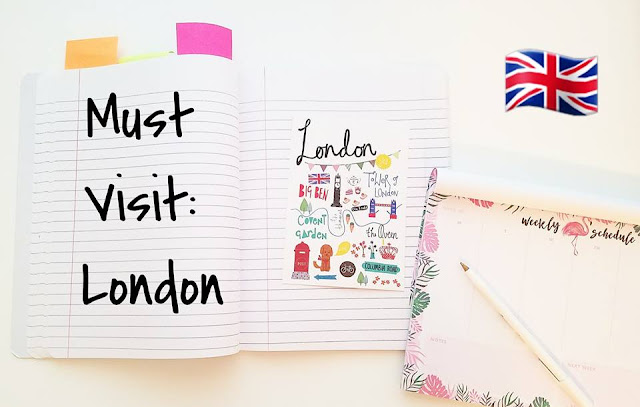 Must
Visit:
London
London
BIG BEN
TOWER of
LONDON
COVENT
GARDEN
the Queen
POST
COLUMBIA ROAD
weekly schedule
NOTES
NEXT WEEK